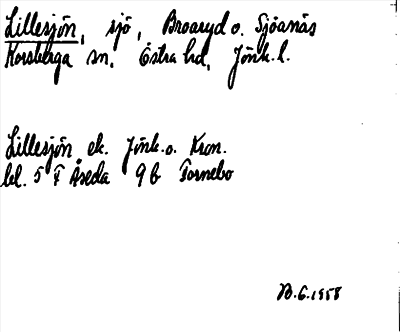 Lillesjön, sjö, Broaryd o. Sjöanäs
Korsberga sn, Östra hd, Jönk. l.
Lillesjön ek. Jönk. o. Kron.
bl. 5 F Åseda 9 b Fornebo
6.1958